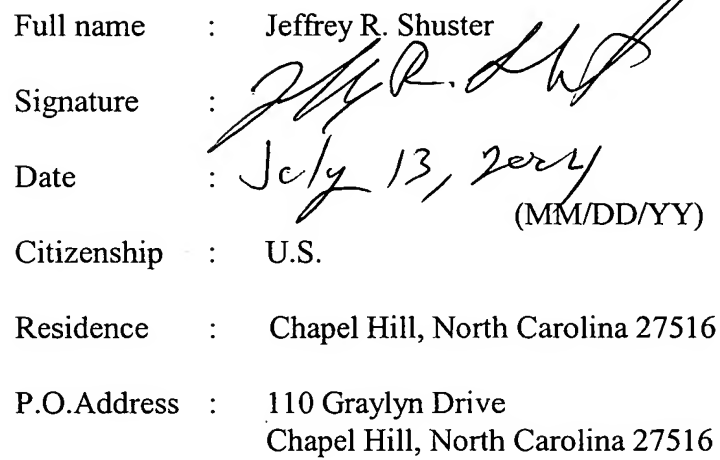 Full name : Jeffrey R. Shuster
Signature :
Date : July 13, 2004
(MM/DD/YY)
Citizenship : U.S.
Residence : Chapel Hill, North Carolina 27516
P.O.Address : 110 Graylyn Drive
Chapel Hill, North Carolina 27516